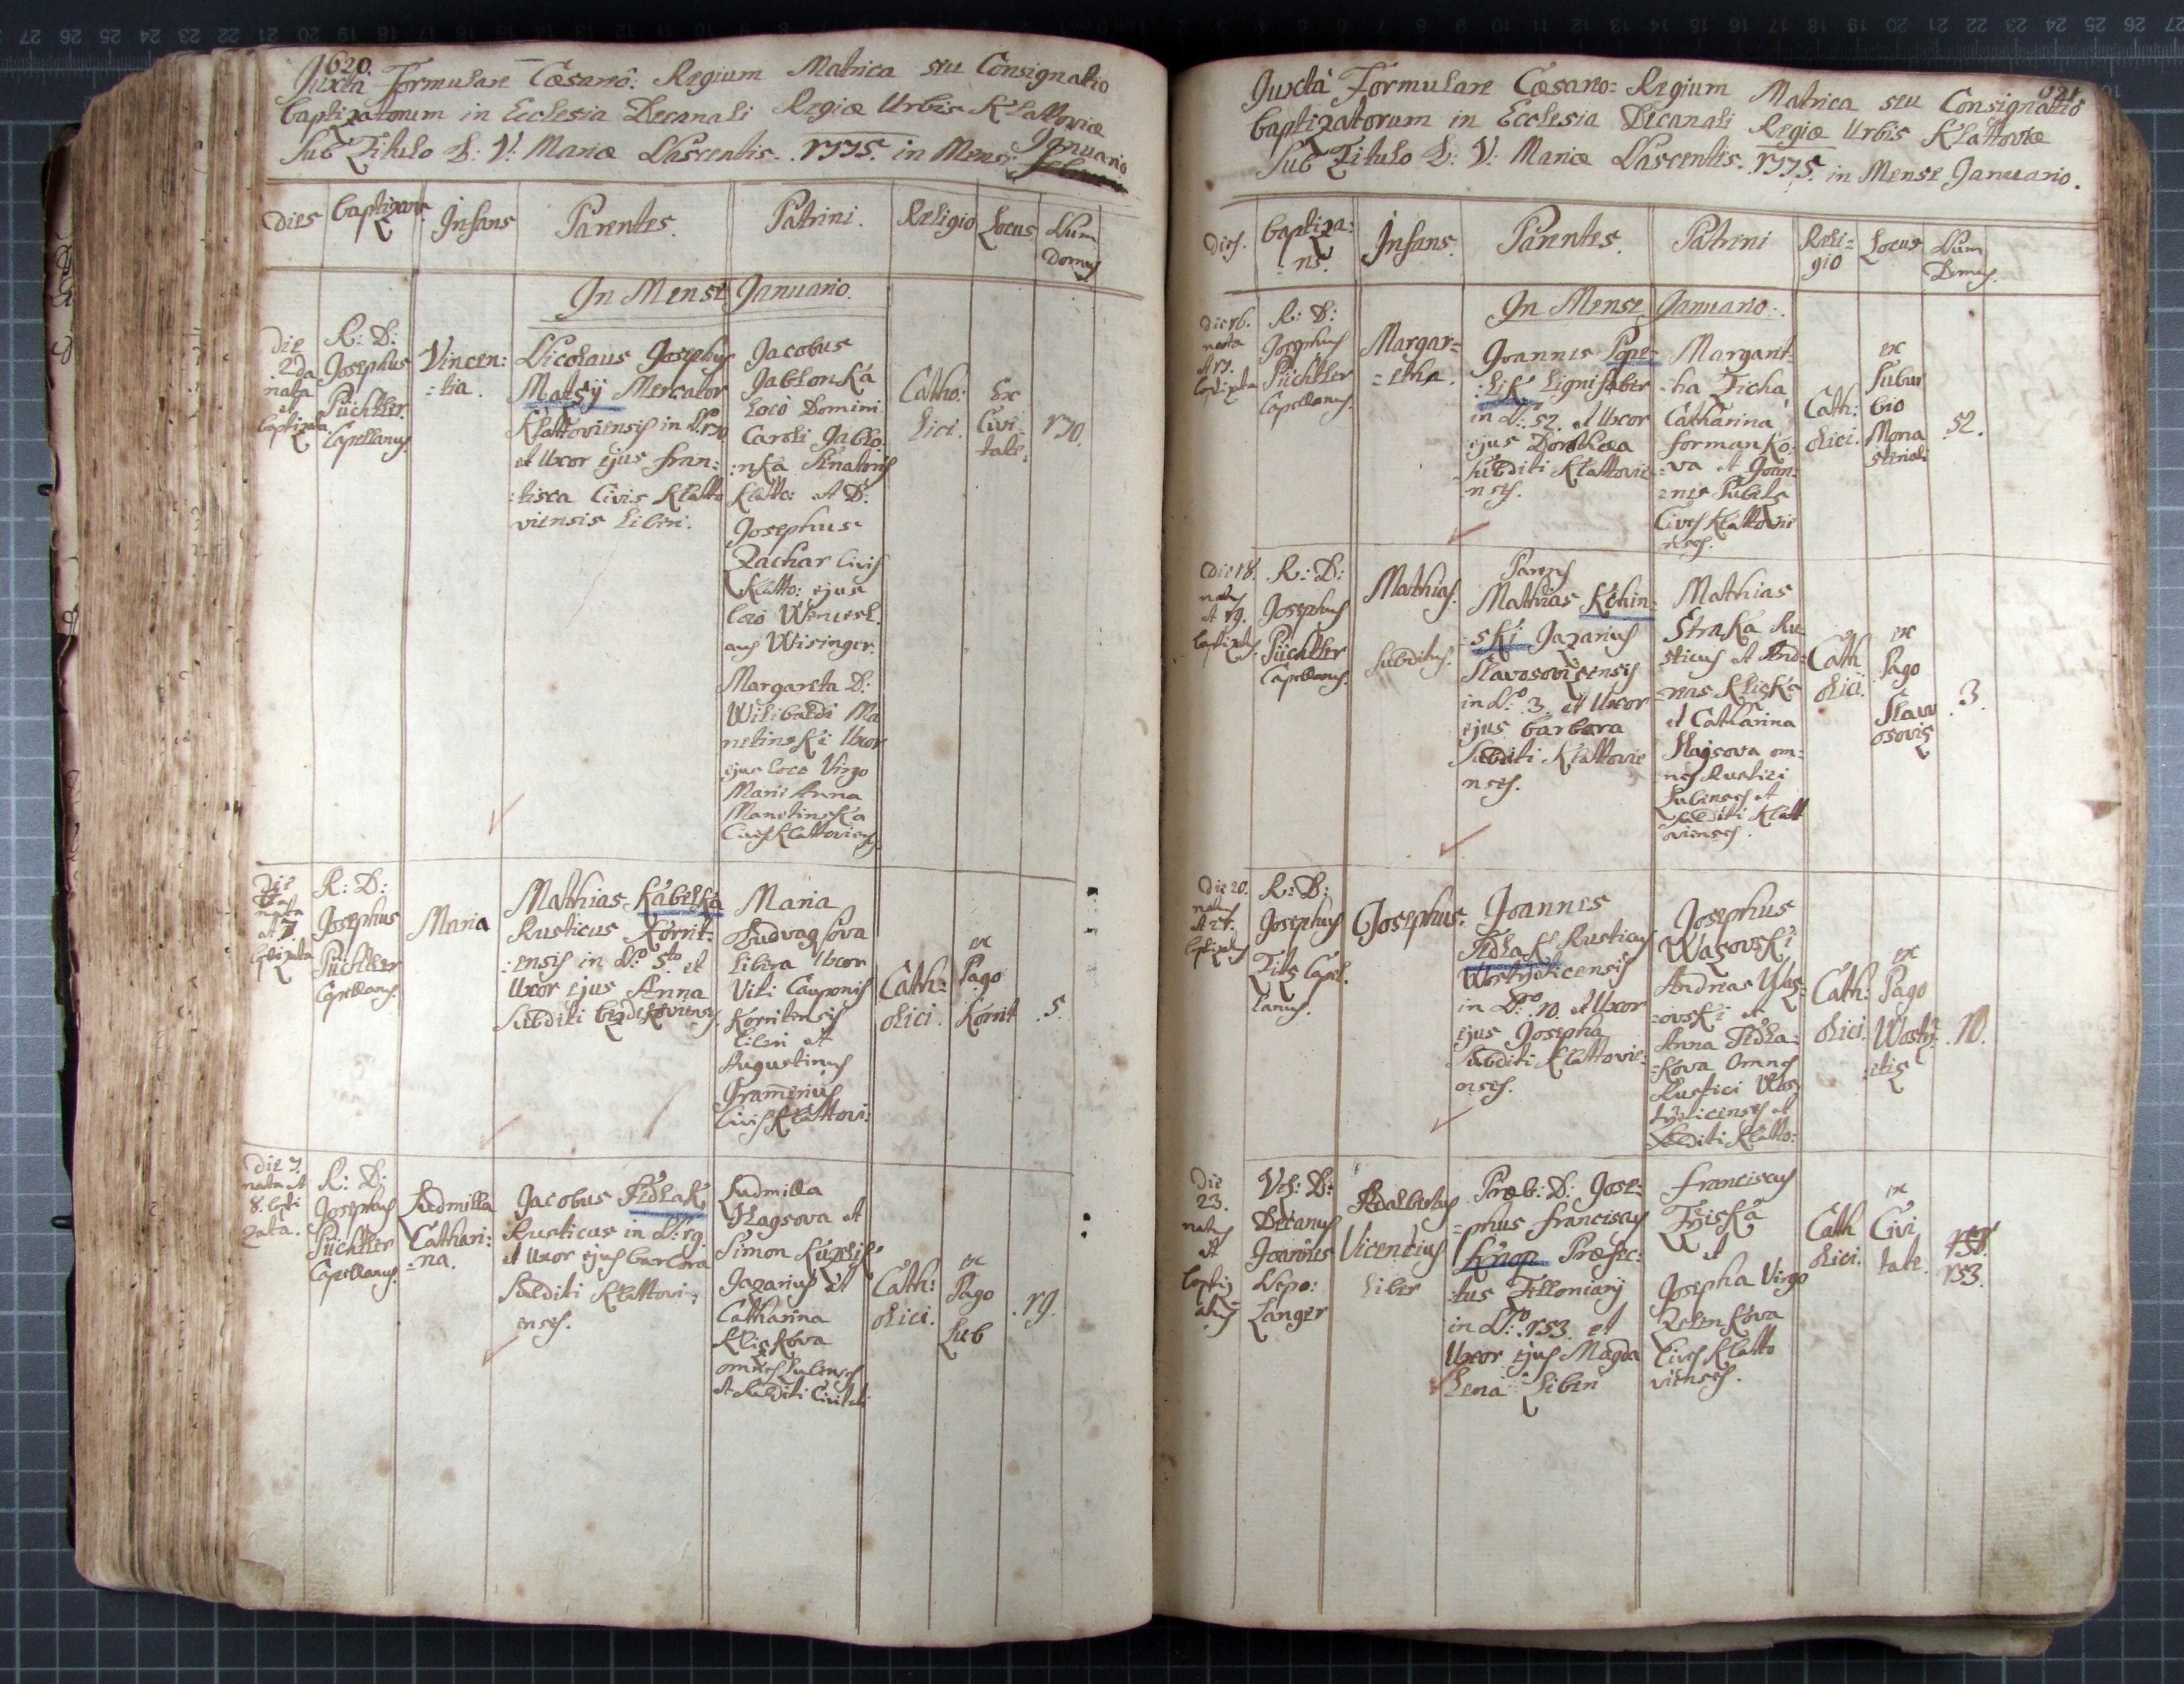 620.
Juxta Formulare Cæsareô: Regium Matrica seu Consignatio
baptizatorum in Ecclesia Decanali Regiæ Urbis Klattoviæ
Sub Titulo B: V: Mariæ Nascentis. 1775. in Mense Januario
Dies
baptizans
Infans
Parentes.
Patrini.
Religio
Locus
Num
Domus
In Mense Januario.
die
2da
nata
et
baptizata
R: D:
Josephus
Püchtler
Capellanus.
Vincen:
=tia.
Nicolaus Josephus
Matsÿ Mercator
Klattoviensis in N. 170
et Uxor ejus Fran:
:tisca Civis Klatto
viensis Liberi.
Jacobus
Jablonka
Loco Domini
Caroli Jablo
:nka Senatoris
Klatto: et D:
Josephus
Zachar Civis
Klatto: ejus
loco Wencesl.
aus Wisinger.
Margareta D:
Wilibaldi Ma
netinski Uxor
ejus loco Virgo
Maria Anna
Manetinska
Cives Klattoviens
Catho:
lici.
Ex
Civi
tate.
170.
Die
nata
et 7
baptizata
R: D:
Josephus
Püchtler
Capellanus.
Maria
Mathias Kabelka
Rusticus Korrit:
:ensis in N. 5to et
Uxor ejus Anna
Subditi
Maria
Libera Uxor
Viti Cauponis
Korritensis
liberi et
Augustinus
Gramerius
Civis Klattovi:
Cath:
olici.
ex
Pago
Korrit
5.
die 7.
nata et
8. bapti
zata.
R: D:
Josephus
Püchtler
Capellanus.
Ludmilla
Cathari:
=na.
Jacobus Sedlak
Rusticus in N. 19.
et Uxor ejus barbora
Subditi Klattovi:
enses.
Ludmilla
Hagsova et
Simon Kuzelik
Jazarius et
Catharina
Klickova
omnes Lubenses
et Subditi Civitat:
Cath:
olici.
ex
Pago
Lub
.19.
621.
Juxta Formulare Cæsareo= Regium Matrica seu Consignatio
baptizatorum in Ecclesia Decanali Regiæ Urbis Klattoviæ
Sub Titulo B: V: Mariæ Nascentis. 1775. in Mense Januario.
Dies.
baptiza:
=ns.
Infans.
Parentes.
Patrini
Reli=
gio
Locus
Num
Domus.
In Mense Januario.
die 16.
nata
et 17.
baptizata
R: D:
Josephus
Püchtler
Capellanus.
Margar=
=etha.
Joannes Pope=
:lik Lignifaber
in N: 52. et Uxor
ejus Dorothæa
Subditi Klattovie
nses.
Margaret
=ha Ticha
Catharina
formanko
=va et Joan:
=nes
Cives Klattovie
nses.
Cath:
olici.
ex
Subur
bio
Mona
steriali
52.
die 18.
natus
et 19.
baptizatus.
R: D:
Josephus
Püchtler
Capellanus.
Mathias.
Subditus.
Parens
Mathias Kchin=
=ski Jazarius
Slavosovicensis
in N. 3. et Uxor
ejus barbara
Subditi Klattovie
nses.
Mathias
Straka Ru
sticus et And:
=reas Klicka
et Catharina
Hajsova om=
nes Rustici
Lubenses et
Subditi Klatt
ovienses.
Cath
olici.
ex
Pago
Slaw
osovic
3.
Die 20.
natus
et 21.
baptizatus
R: D:
Josephus
Titz Capel
lanus.
Josephus.
Joannes
Sedlak Rusticus
Wostrzeticensis
in N. 10. et Uxor
ejus Josepha
Subditi Klattovie=
nses.
Josephus
Wazovski
Andreas
=ovski et
Anna Sedla=
=kova Omnes
Rustici Wos
trzeticenses et
Subditi Klatto:
Cath:
olici.
ex
Pago
Wostrz
:etic
10.
Die
23.
natus
et
baptiz
atus
Decanus
Joannes
Nepo:
Langer
Adalbertus
Vicentius
Liber
Præb: D: Jose=
=phus Franciscus
Præfec:
:tus Teloniarÿ
in N. 153. et
Uxor ejus Magda
lena Liberi
Franciscus
et
Josepha Virgo
Zelenkova
Cives Klatto
vienses.
Cath
olici.
ex
Civi
tate.
153.